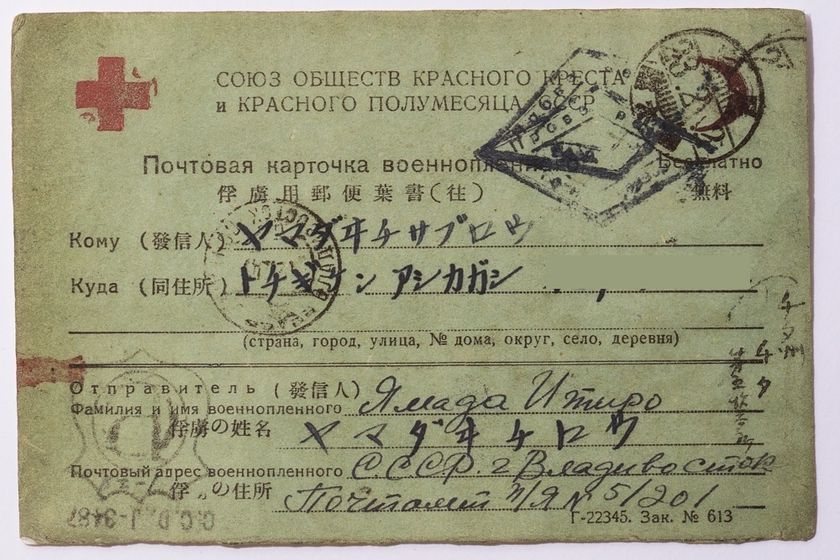 СОЮЗ ОБЩЕСТВ КРАСНОГО КРЕСТА
и КРАСНОГО ПОЛУМЕСЯЦА СССР
Почтовая карточка военнопленного
Бесплатно
俘虜用郵便葉書（往）
無料
Кому (發信人) ヤマダヰチサブロウ
Куда (同住所) トチギケン アシカガシ
(страна, город, улица, № дома, округ, село, деревня)
Отправитель (發信人)
Фамилия и имя военнопленного Ямада Итиро
俘虜の姓名 ヤマダヰチロウ
Почтовый адрес военнопленного С.С.С.Р. г Владивосток
俘 の住所 Почтамт п/я № 5/201
Г-22345. Зак. № 613
C.C.D. J-3487